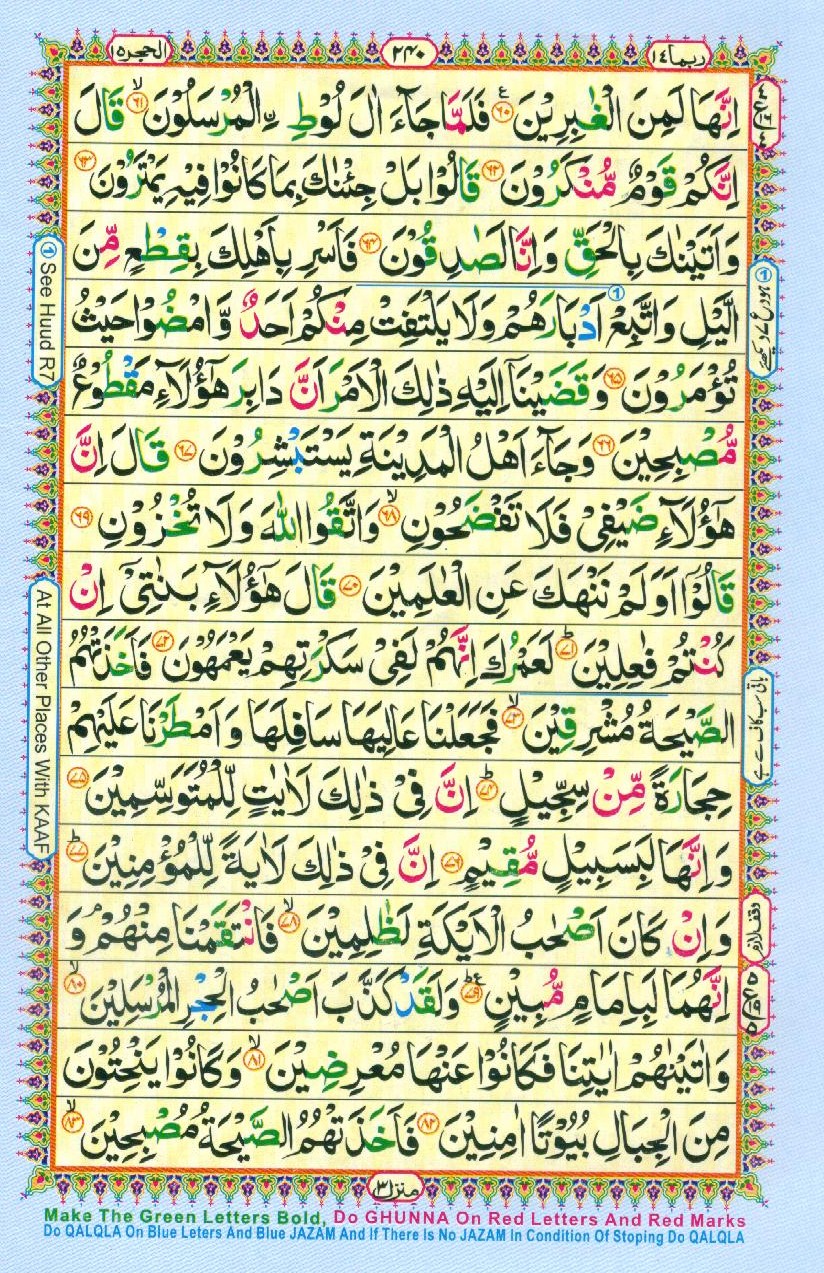 ربما ١٤
٢٤٠
الحجر ١٥
اِنَّهَا لَمِنَ الْغٰبِرِيْنَ ﴿٦٠﴾ فَلَمَّا جَآءَ اٰلَ لُوْطِ ۨالْمُرْسَلُوْنَ ۙ﴿٦١﴾ قَالَ
اِنَّكُمْ قَوْمٌ مُّنْكَرُوْنَ ﴿٦٢﴾ قَالُوْا بَلْ جِئْنٰكَ بِمَا كَانُوْا فِيْهِ يَمْتَرُوْنَ ﴿٦٣﴾
وَاَتَيْنٰكَ بِالْحَقِّ وَاِنَّا لَصٰدِقُوْنَ ﴿٦٤﴾ فَاَسْرِ بِاَهْلِكَ بِقِطْعٍ مِّنَ
الَّيْلِ وَاتَّبِعْ اَدْبَارَهُمْ وَلَا يَلْتَفِتْ مِنْكُمْ اَحَدٌ وَّامْضُوْا حَيْثُ
تُؤْمَرُوْنَ ﴿٦٥﴾ وَقَضَيْنَآ اِلَيْهِ ذٰلِكَ الْاَمْرَ اَنَّ دَابِرَ هٰٓؤُلَآءِ مَقْطُوْعٌ
مُّصْبِحِيْنَ ﴿٦٦﴾ وَجَآءَ اَهْلُ الْمَدِيْنَةِ يَسْتَبْشِرُوْنَ ﴿٦٧﴾ قَالَ اِنَّ
هٰٓؤُلَآءِ ضَيْفِيْ فَلَا تَفْضَحُوْنِ ۙ﴿٦٨﴾ وَاتَّقُوا اللّٰهَ وَلَا تُخْزُوْنِ ﴿٦٩﴾
قَالُوْٓا اَوَلَمْ نَنْهَكَ عَنِ الْعٰلَمِيْنَ ﴿٧٠﴾ قَالَ هٰٓؤُلَآءِ بَنٰتِيْٓ اِنْ
كُنْتُمْ فٰعِلِيْنَ ؕ﴿٧١﴾ لَعَمْرُكَ اِنَّهُمْ لَفِيْ سَكْرَتِهِمْ يَعْمَهُوْنَ ﴿٧٢﴾ فَاَخَذَتْهُمُ
الصَّيْحَةُ مُشْرِقِيْنَ ۙ﴿٧٣﴾ فَجَعَلْنَا عَالِيَهَا سَافِلَهَا وَاَمْطَرْنَا عَلَيْهِمْ
حِجَارَةً مِّنْ سِجِّيْلٍ ؕ﴿٧٤﴾ اِنَّ فِيْ ذٰلِكَ لَاٰيٰتٍ لِّلْمُتَوَسِّمِيْنَ ﴿٧٥﴾
وَاِنَّهَا لَبِسَبِيْلٍ مُّقِيْمٍ ﴿٧٦﴾ اِنَّ فِيْ ذٰلِكَ لَاٰيَةً لِّلْمُؤْمِنِيْنَ ؕ﴿٧٧﴾
وَاِنْ كَانَ اَصْحٰبُ الْاَيْكَةِ لَظٰلِمِيْنَ ۙ﴿٧٨﴾ فَانْتَقَمْنَا مِنْهُمْ ۘ وَ
اِنَّهُمَا لَبِاِمَامٍ مُّبِيْنٍ ؕ﴿٧٩﴾ وَلَقَدْ كَذَّبَ اَصْحٰبُ الْحِجْرِ الْمُرْسَلِيْنَ ۙ﴿٨٠﴾
وَاٰتَيْنٰهُمْ اٰيٰتِنَا فَكَانُوْا عَنْهَا مُعْرِضِيْنَ ۙ﴿٨١﴾ وَكَانُوْا يَنْحِتُوْنَ
مِنَ الْجِبَالِ بُيُوْتًا اٰمِنِيْنَ ﴿٨٢﴾ فَاَخَذَتْهُمُ الصَّيْحَةُ مُصْبِحِيْنَ ۙ﴿٨٣﴾
منزل ٣
① See Huud R7
At All Other Places With KAAF
وقف لازم
Make The Green Letters Bold, Do GHUNNA On Red Letters And Red Marks
Do QALQLA On Blue Leters And Blue JAZAM And If There Is No JAZAM In Condition Of Stoping Do QALQLA